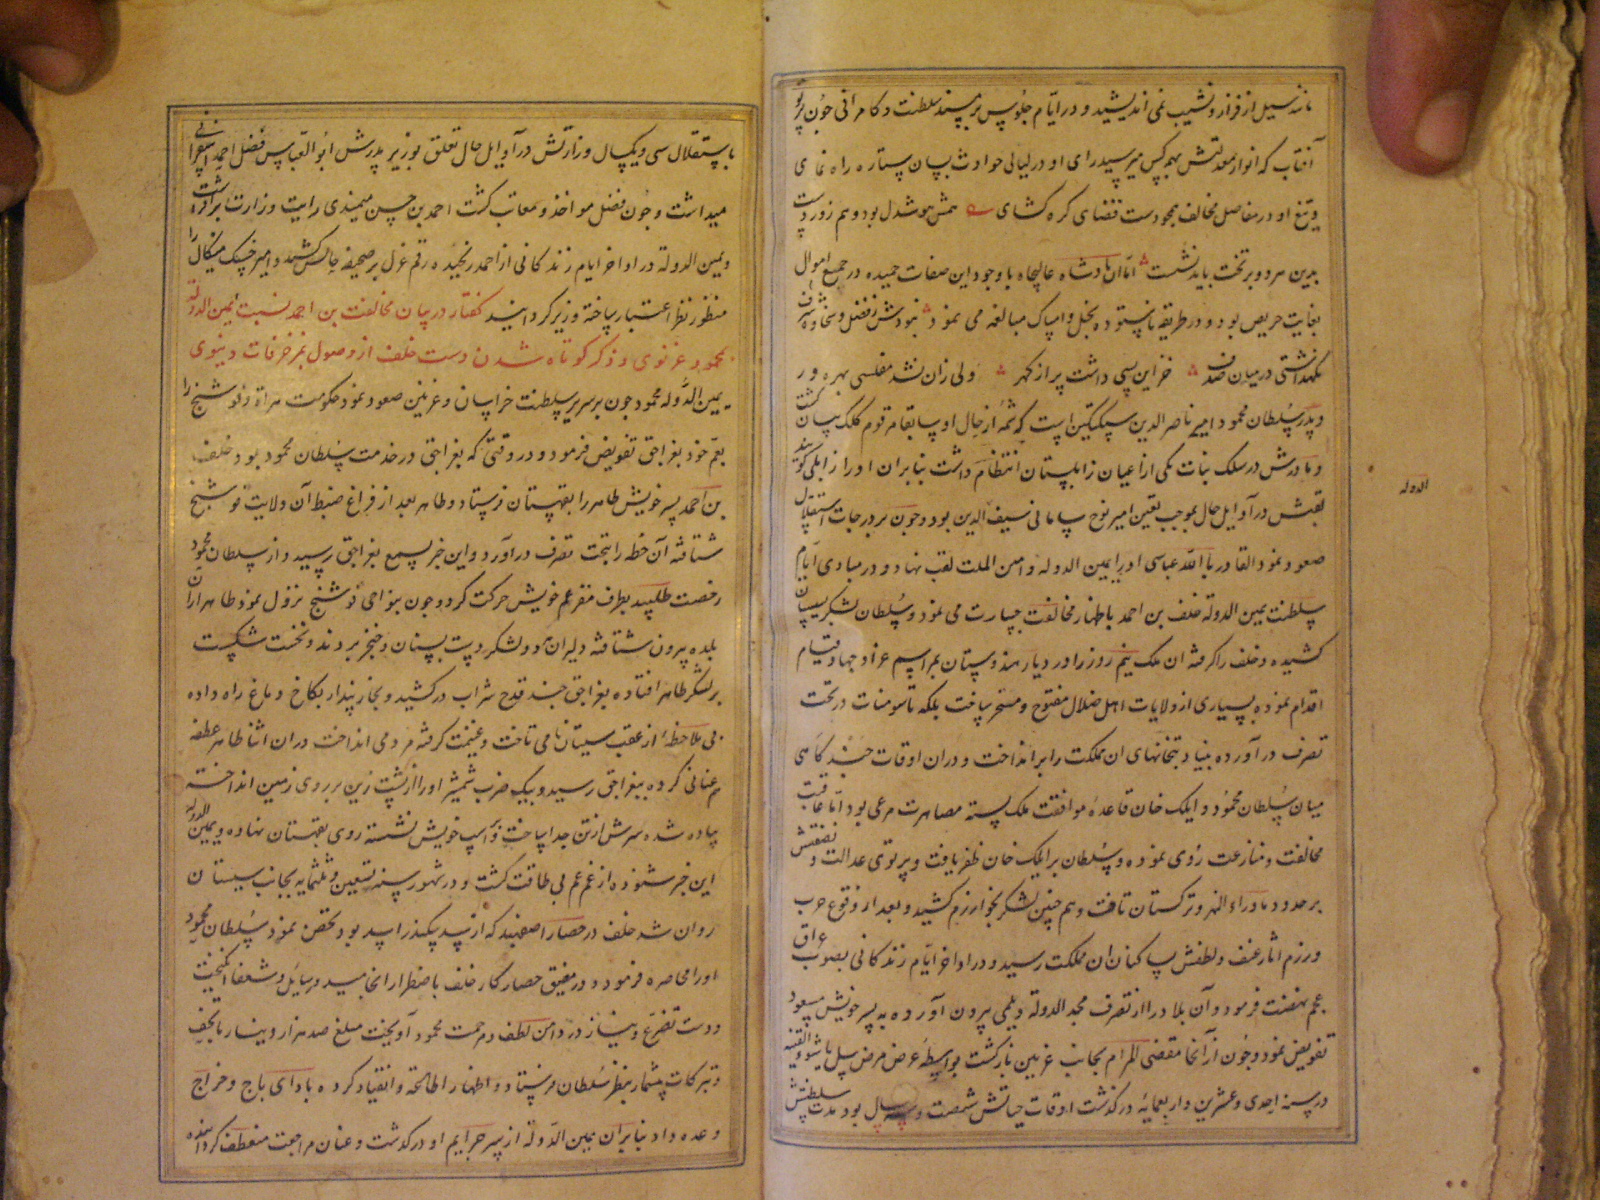 مانند سیل از فراز و نشیب نمی اندیشید و در ایام جلوس بر مسند سلطنت و کامرانی چون پرتو
آفتاب که انوار معدلتش بهمه کس میرسید رای او در لیالی حوادث بسان ستاره راه نمای
و تیغ او در مفاصل مخالف همچو دست قضای گره گشای همش هوش دل بود و هم زور دست
بدین هر دو بر تخت باید نشست اما آن پادشاه عالیجاه با وجود این صفات حمیده در جمع اموال
بغایت حریص بود و در طریقه ناستوده بخل و امساک مبالغه می نمود نبودش ز فضل و سخاوت شرف
نگهداشتی در میان صدف خزاین بسی داشت پر از گهر ولی زان نشد مفلسی بهره ور
و پدر سلطان محمود امیر ناصر الدین سبکتکین است که شمهٔ از حال او سابقا مرقوم کلک بیان گشت
و مادرش در سلک بنات یکی از اعیان زابلستان انتظام داشت بنابران او را زابلی گویند
لقبش در اوایل حال بموجب تعیین امیر نوح سامانی سیف الدین بود و چون بر درجات استقلال
صعود نمود القادر بالله عباسی او را یمین الدوله و امین الملت لقب نهاد و در مبادی ایام
سلطنت یمین الدوله خلف بن احمد باظهار مخالفت جسارت می نمود و سلطان لشکر بسیستان
کشیده و خلف را گرفته ان ملک نیم روز را در دیار هندوستان بمراسم غزا و جهاد قیام
اقدام نموده بسیاری از ولایات اهل ضلال مفتوح و مسخر ساخت بلکه تا سومنات در تحت
تصرف در آورده بنیاد بتخانهای ان مملکت را بر انداخت و در ان اوقات چند گاهی
میان سلطان محمود و ایلک خان قاعدهٔ موافقت بلکه مصاهرت مرعی بود اما عاقبت
مخالفت و منازعت روی نموده و سلطان بر ایلک خان ظفر یافت و پرتوی عدالت و نصفتش
بر حدود ماوراء النهر و ترکستان تافت و هم چنین لشکر بخوارزم کشید و بعد از وقوع حرب
و رزم اثار عنف و لطفش بساکنان ان مملکت رسید و در اواخر ایام زندگانی بصوب عراق
عجم نهضت فرمود و آن بلاد را از تصرف مجد الدوله دیلمی بیرون آورده به پسر خویش مسعود
تفویض نمود و چون از آنجا مقضی المرام بجانب غزنین بازگشت بواسطهٔ عرض مرض سل
در سنه احدی و عشرین و اربعمایه درگذشت اوقات حیاتش شصت و سال بود مدت سلطنتش
الدوله
باستقلال سی و یکسال وزارتش در اوایل حال تعلق بوزیر پدرش ابو العباس فضل احمد اسفراینی
میداشت و چون فضل مواخذ و معاتب گشت احمد بن حسن میمندی رایت وزارت برافراشت
و یمین الدوله در اواخر ایام زندگانی از احمد رنجیده رقم عزل بر صحیفه حالش کشید و امیر حسنک میکال را
منظور نظر اعتبار ساخته وزیر گردانید گفتار در بیان مخالفت بن احمد نسبت بیمین الدوله
محمود غزنوی و ذکر کوتاه شدن دست خلف از وصول بمزخرفات دنیوی
یمین الدوله محمود چون بر سریر سلطنت خراسان و غزنین صعود نمود حکومت هراة و فوشنج را
بعم خود بغراجق تفویض فرمود و در وقتی که بغراجق در خدمت سلطان محمود بود خلف
بن احمد پسر خویش طاهر را بقهستان فرستاد و طاهر بعد از فراغ ضبط آن ولایت بفوشنج
شتافته آن خطه را بتحت تصرف درآورد و این خبر بسمع بغراجق رسید و از سلطان محمود
رخصت طلبید بطرف مقر عم خویش حرکت کرد و چون بنواحی فوشنج نزول نمود طاهر از ان
بلده بیرون شتافته دلیران هر دو لشکر دست بسنان و خنجر بردند و نخست شکست
بر لشکر طاهر افتاده بغراجق چند قدح شراب درکشید و بخار پندار بکاخ دماغ راه داده
بی ملاحظهٔ از عقب سیستانیان می تاخت و غنیمت گرفته مرد می انداخت در ان اثنا طاهر عطفه
عنانی کرده ببغراجق رسید و بیک ضرب شمشیر او را از پشت زین بر روی زمین انداخته
پیاده شده سرش از تن جدا ساخت و بر اسپ خویش نشسته روی بقهستان نهاده و یمین الدوله
این خبر شنوده از غم عم بی طاقت گشت و در شهور سنه تسعین و ثلثمایه بجانب سیستان
روان شد خلف در حصار اصفهبد که از سد سکندر اسد بود تحصن نمود و سلطان محمود
او را محاصره فرمود و در مضیق حصار کار خلف باضطرار انجامید و رسایل و شفعا انگیخت
و دست تضرع و نیاز در دامن لطف و مرحمت محمود آویخت مبلغ صد هزار دینار با تحف
و تبرکات بیشمار بنظر سلطان فرستاد و اظهار اطاعت و انقیاد کرده بادای باج و خراج
وعده داد بنابران یمین الدوله از سر جرایم او درگذشت و عنان مراجعت منعطف گردانیده